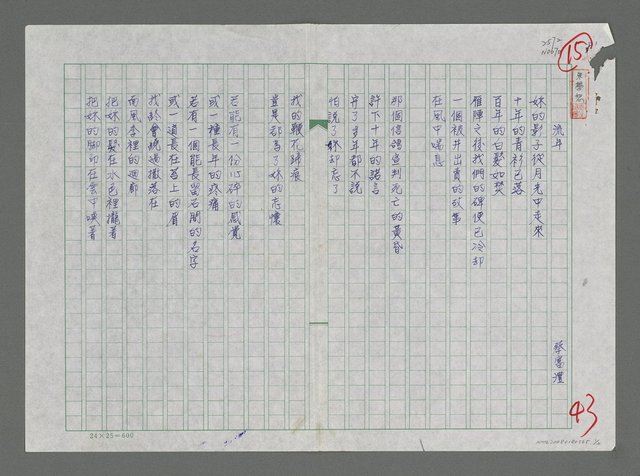 15
流年
蔡富澧
妳的影子從月光中走來
十年的青衫已落
百年的白髮如焚
雁陣之後我們的碑便已冷却
一個被井出賣的故事
在風中喘息
那個信鴿宣判死亡的黃昏
許下十年的諾言
穿了多年都不說
怕說了妳却忘了
我的鞭花歸痕
豈是都為了妳的忘懷
若能有一份心碎的感覺
或一種長年的疼痛
若有一個能長留石間的名字
或一道長在筝上的眉
我終會繞過撒落在
雨風季裡的迴廊
把妳的髮在水色裡攏著
把妳的腳印在雲中喚著
43
24×25=600